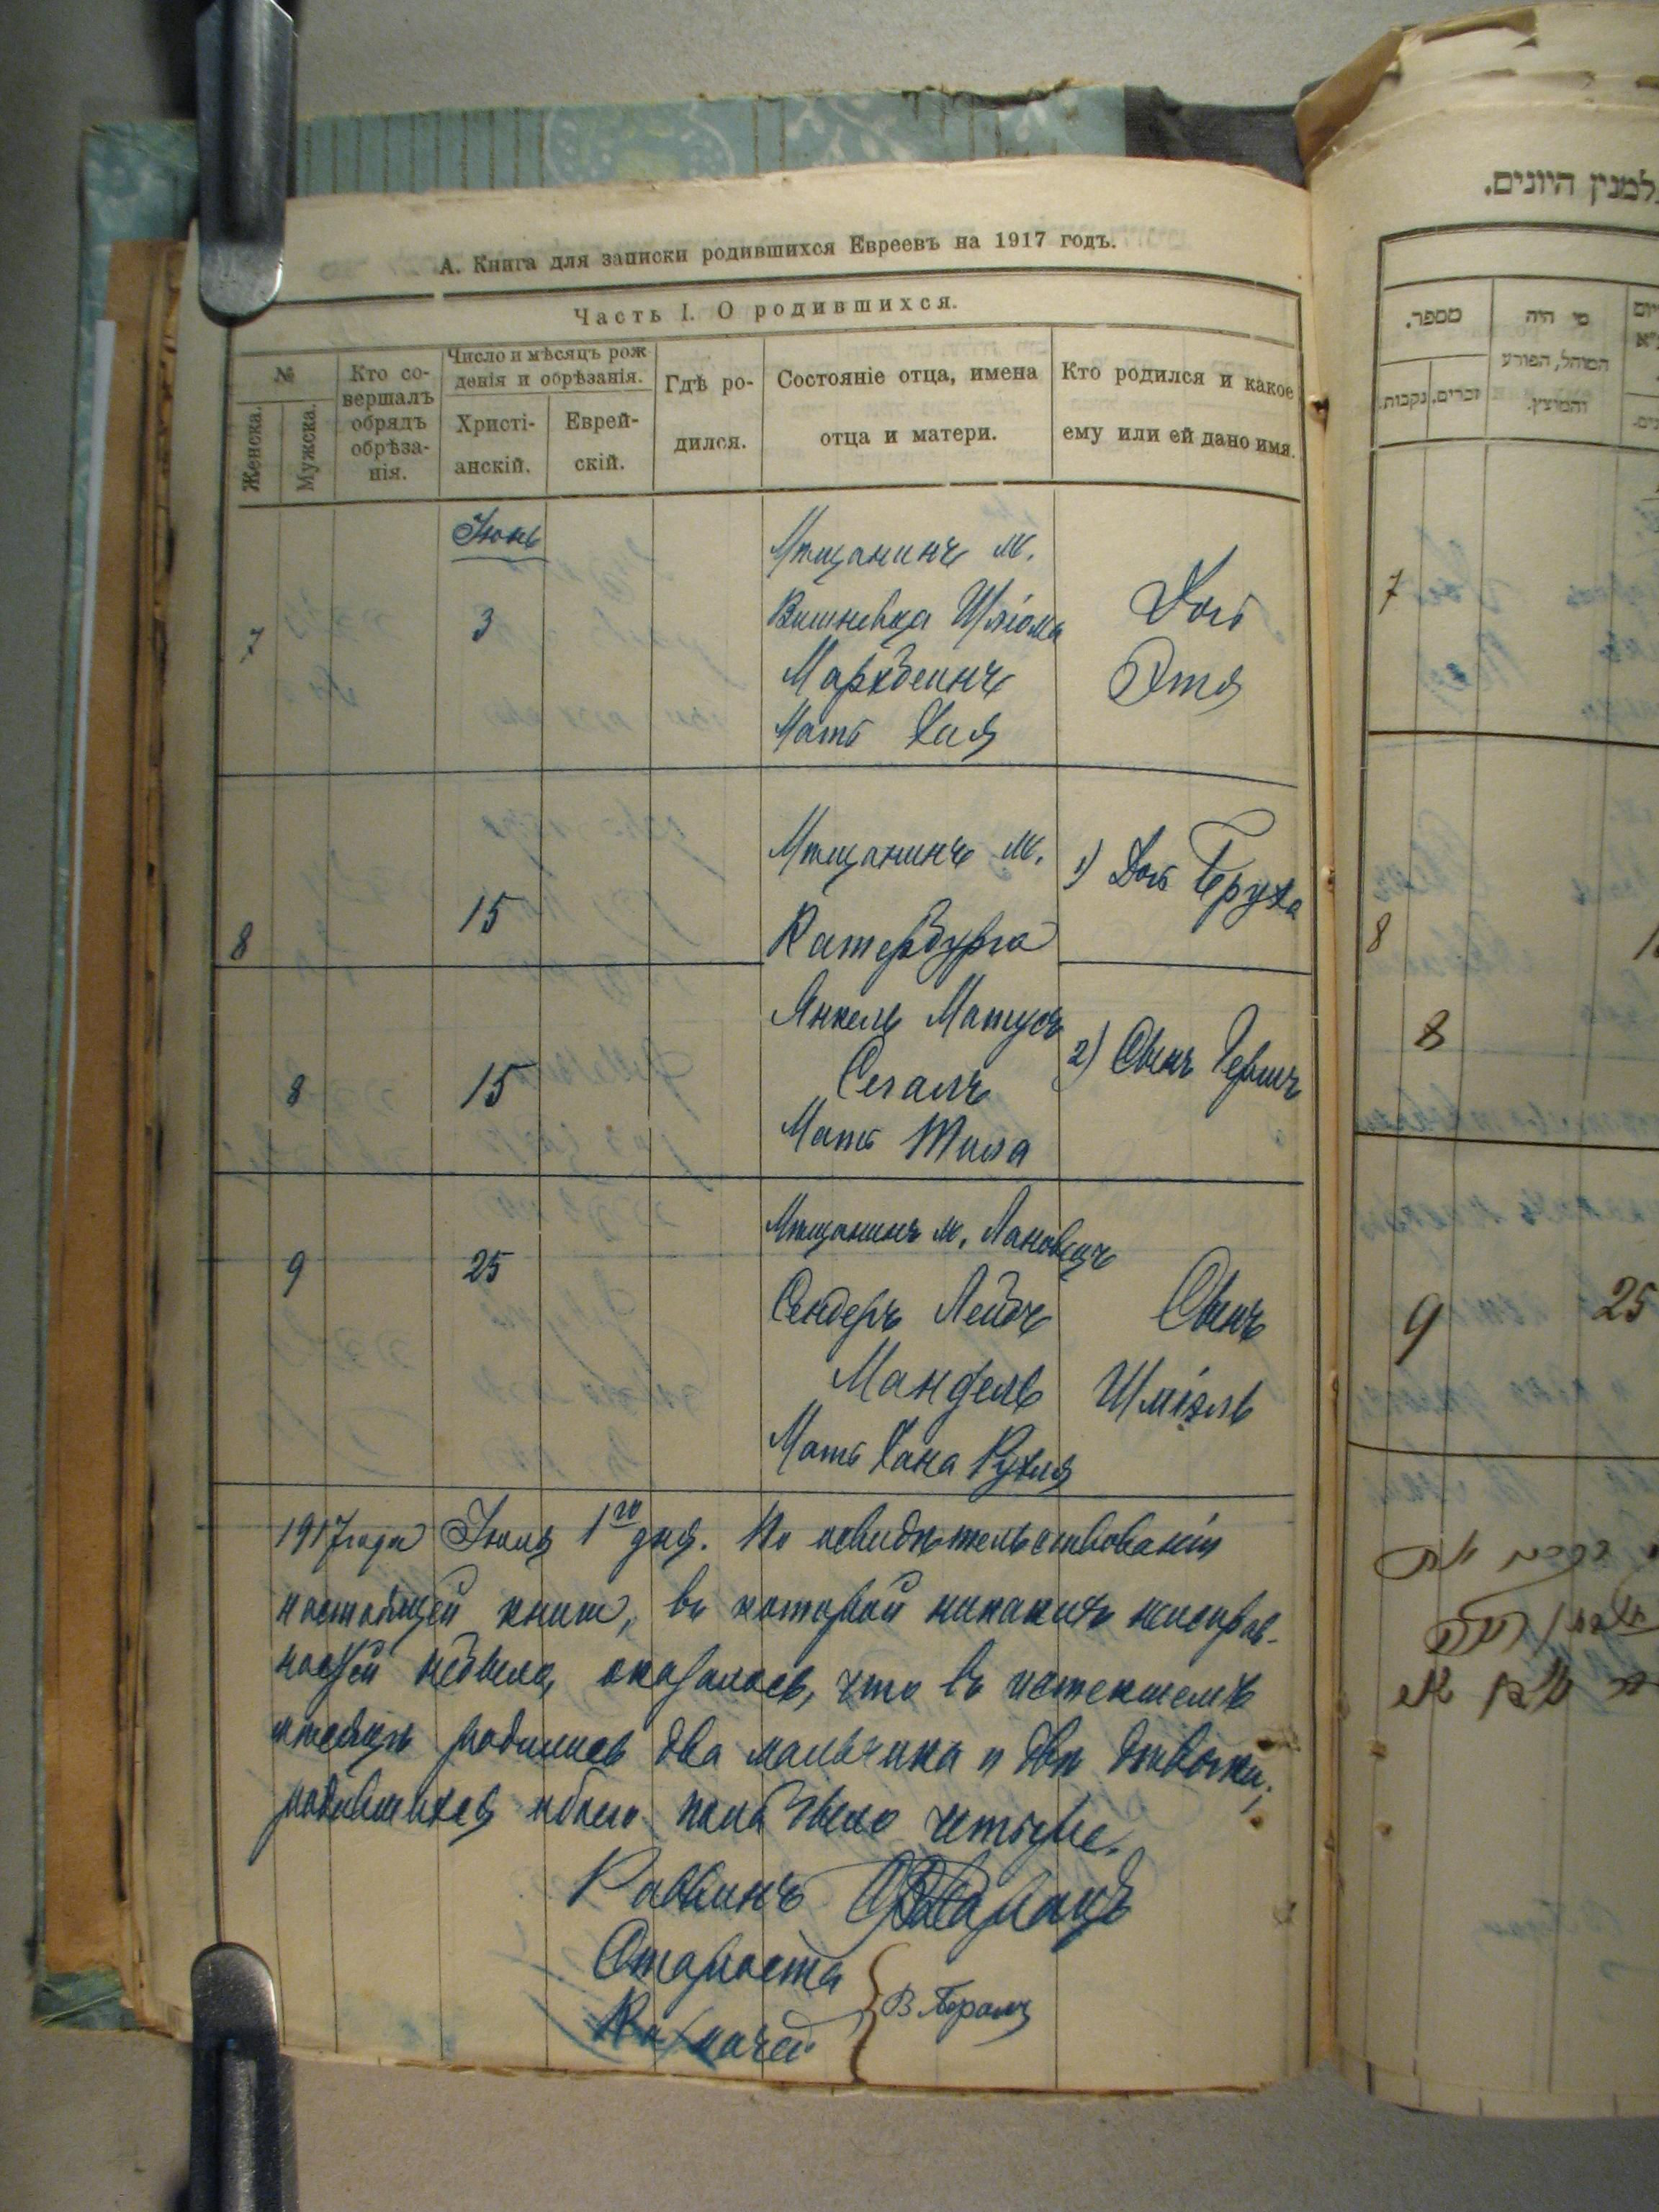 А. Книга для записки родившихся Евреевъ на 1917 годъ.
Часть I. О родившихся.
№
Женска.
Мужска.
Кто со-
вершалъ
обрядъ
обрѣза-
нія.
Число и мѣсяцъ рож
денія и обрѣзанія.
Христі-
анскій.
Еврей-
скій.
Гдѣ ро-
дился.
Состояніе отца, имена
отца и матери.
Кто родился и какое
ему или ей дано имя.
Іюнь
7
3
Мѣщанинъ м.
Вишневца Шліома
Мать Хая
Дочь
Этя
8
15
8
15
Мѣщанинъ м.
Катербурга
Янкель Матусъ
Сегалъ
Мать
1) Дочь Бруха
2) Сынъ Гершъ
9
25
Мѣщанинъ м. Лановецъ
Сендеръ Лейбъ
Мандель
Мать Хана Рухля
Сынъ
Шміэль
1917 года Іюля 1го дня. По освидѣтельствованіи
настоящей книги, въ которой никакихъ неисправ-
ностей небыло, оказалось, что въ истекшемъ
мѣсяцѣ родились два мальчика и двѣ дѣвочки,
родившихся обоего пола было четыре.
Раввинъ
Староста
Казначей
למנין היונים.
מספר.
זכרים.
נקבות.
מי היה
המוהל, הפורע
והמוצץ.
7
8
8
9
25